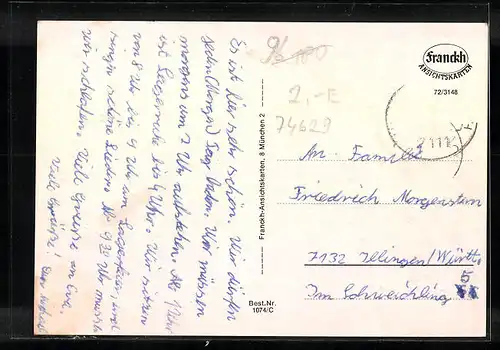 Es ist hier sehr schön. Wir dürfen
jeden (Morgen) Tag baden. Wir müssen
morgens um 7 Uhr aufstehen. Ab 1 Uhr
ist Lagerruhe bis 4 Uhr. Wir sitzen
von 8 Uhr bis 9 Uhr am Lagerfeuer, und
singen schöne Lieder. Ab 9.20 Uhr müssen
wir schlafen. Viele Grüsse an Eva.
Viele Grüße! Euer
Franckh-Ansichtskarten, 8 München 2
Best.Nr.
1074/C
2,-E
74623
Franckh
ANSICHTSKARTEN
72/3148
An Familie
Friedrich Morgenstern
7132 Illingen/Württ.
5
Im Schweichling